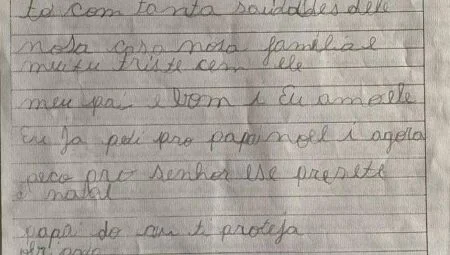 to com tanta saudades dele
nosa casa nosa familia e
muitu triste cem ele
meu pai e bom i Eu amo ele
Eu Ja pedi pro papai noel i agora
peco pro senhor ese presete
natal
papai do ceu ti proteja